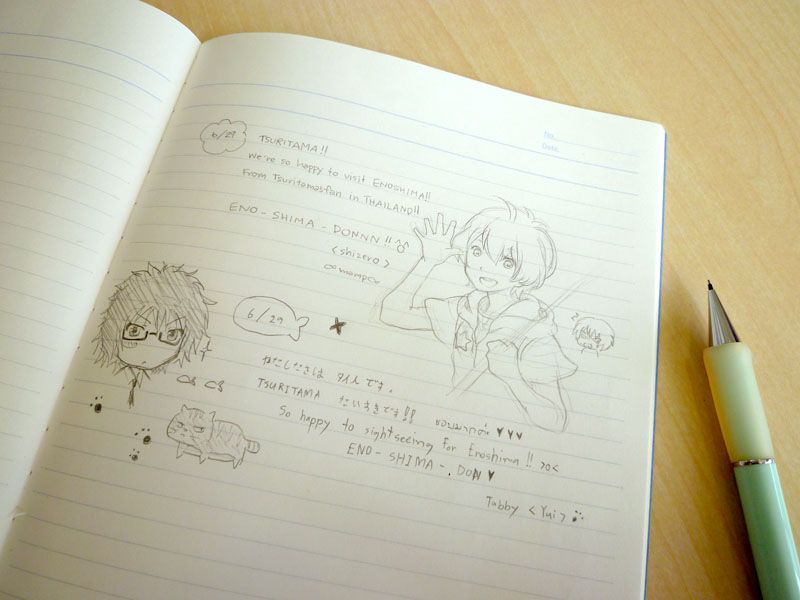 No.
Date
6/29
TSURITAMA!!
We're so happy to visit ENOSHIMA!!
From Tsuritamasfan in THAILAND!!
ENO - SHIMA - DONNN !!
<shizero>
6/29
わたしたちは タイ人 です.
TSURITAMA だいすきです!! ชอบมากค่ะ ♥♥♥
So happy to sightseeing for Enoshima !!
ENO - SHIMA - . DON ♥
Tabby <Yui>